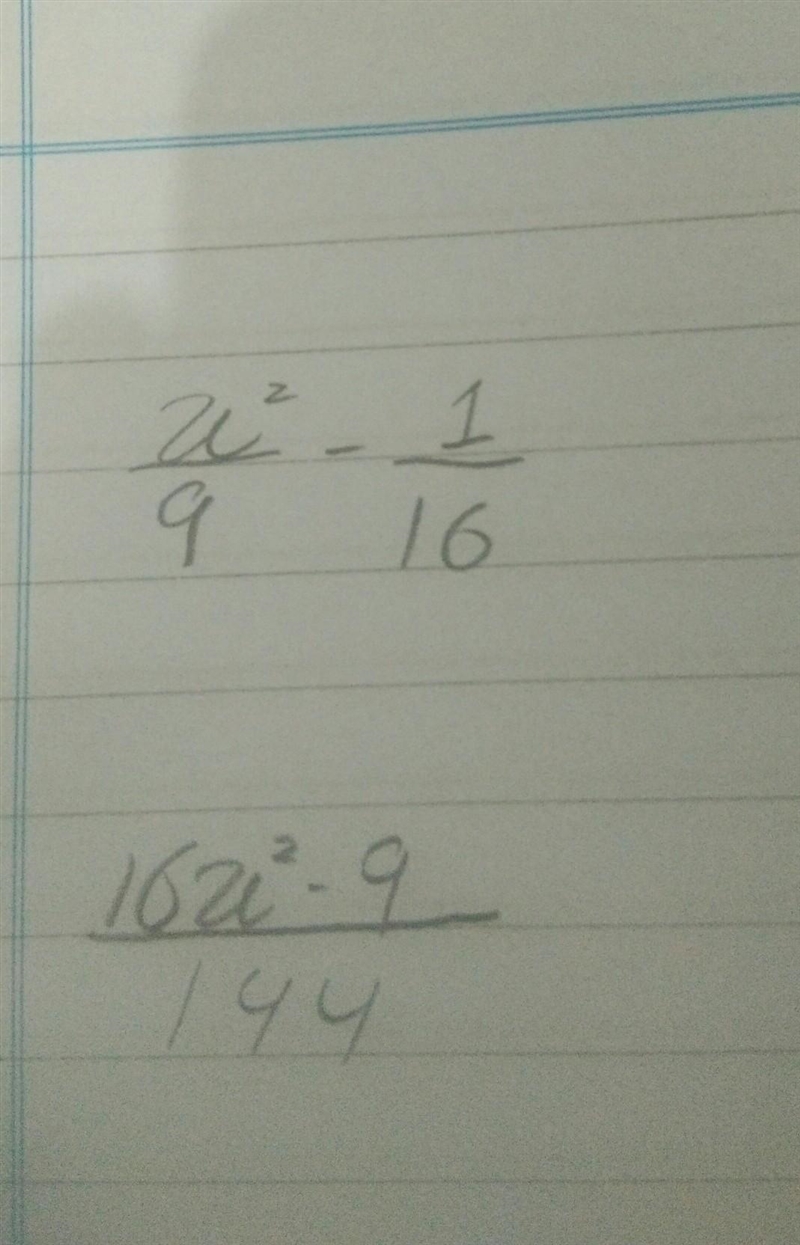 x²/9 - 1/16
16x² - 9/144